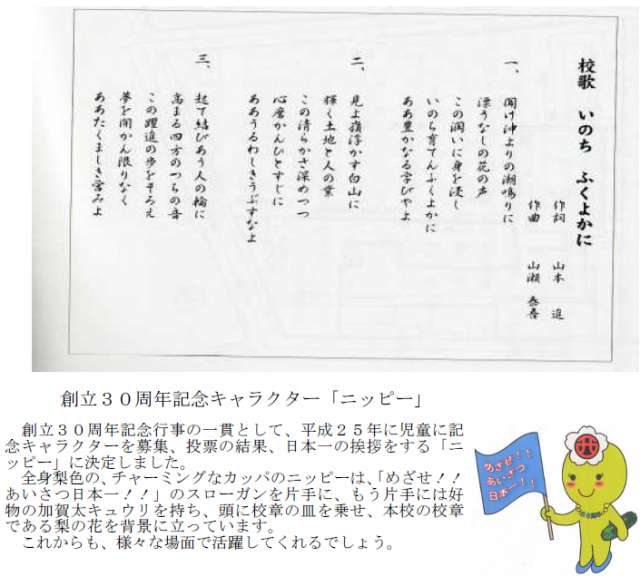 校歌 いのち ふくよかに
作詞 山本 進
作曲 山瀬 泰吾
一、
聞け沖よりの潮鳴りに
漂うなしの花の声
この潤いに身を浸し
いのち育てんふくよかに
ああ豊かなる学びやよ
二、
見よ嶺浮かす白山に
輝く土地と人の業
この清らかさ深めつつ
心磨かんひとすじに
ああうるわしきうぶすなよ
三、
起て結びあう人の輪に
高まる四方のつちの音
この躍進の歩をそろえ
夢を開かん限りなく
ああたくましき営みよ
創立３０周年記念キャラクター「ニッピー」
　創立３０周年記念行事の一貫として、平成２５年に児童に記
念キャラクターを募集、投票の結果、日本一の挨拶をする「ニ
ッピー」に決定しました。
　全身梨色の、チャーミングなカッパのニッピーは、「めざせ！！
あいさつ日本一！！」のスローガンを片手に、もう片手には好
物の加賀太キュウリを持ち、頭に校章の皿を乗せ、本校の校章
である梨の花を背景に立っています。
　これからも、様々な場面で活躍してくれるでしょう。
めざせ！！
あいさつ
日本一！！